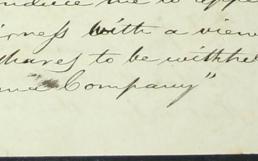 induce me to appe
irness with a view
shares to be withhel
Company"